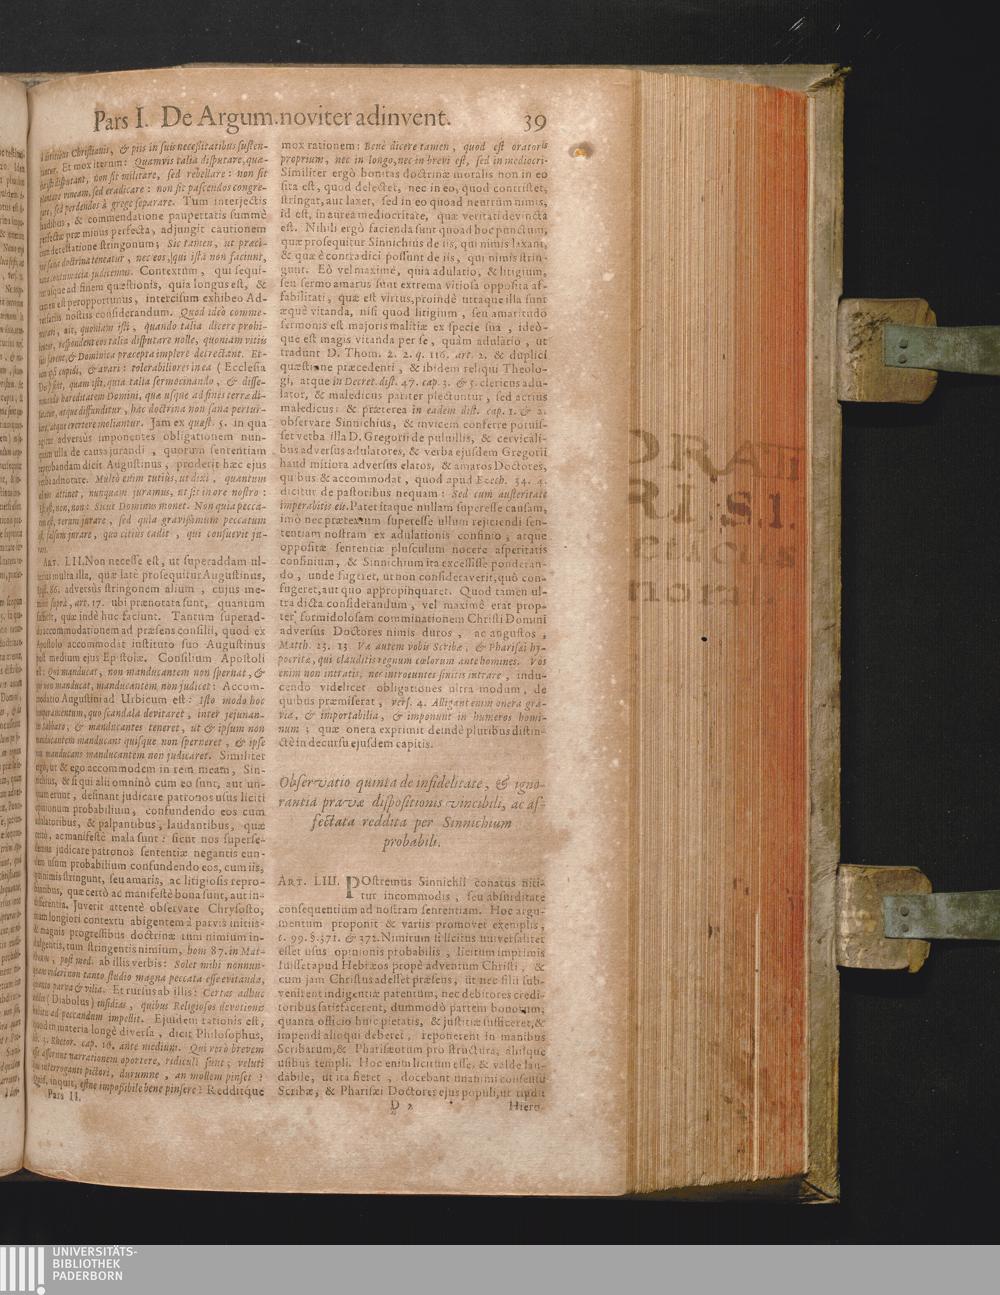 Pars I. De Argum. noviter adinvent. 39
Christianis, & piis in suis necessitatibus susten-
Et mox iterum: Quamvis talia disputare, quæ-
disputant, non sit militare, sed rebellare: non sit
plantare vineam, sed eradicare: non sit pascendos congre-
sed perdendos à grege separare. Tum interjectis
laudibus, & commendatione paupertatis summè
perfectæ præ minus perfecta, adjungit cautionem
detestatione stringonum; Sic tamen, ut præci-
sanæ doctrina teneatur, nec eos, qui ista non faciunt,
contumecia judicemus. Contextum, qui sequi-
usque ad finem quæstionis, quia longus est, &
est peropportunus, intercisum exhibeo Ad-
versariis nostris considerandum. Quod ideò comme-
ait, quoniam isti, quando talia dicere prohi-
bentur, respondent eos talia disputare nolle, quoniam vitiis
& Dominica præcepta implere detrectant. Et-
cupidi, & avari: tolerabiliores in ea (Ecclesia
Dei) sint, quam isti, quia talia sermocinando, & disse-
minando hæreditatem Domini, quæ usque ad fines terræ di-
latatur, atque diffunditur, hac doctrina non sana pertur-
bare, atque evertere moliantur. Jam ex quæst. 5. in qua
agitur adversùs imponentes obligationem nun-
quam ulla de causa jurandi, quorum sententiam
reprobandam dicit Augustinus, proderit hæc ejus
verba adnotare. Multò enim tutius, ut dixi, quantum
ad nos attinet, nunquam juramus, ut sit in ore nostro:
est, est, non, non: Sicut Dominus monet. Non quia pecca-
est, verum jurare, sed quia gravissimum peccatum
est, falsum jurare, quo citius cadit, qui consuevit ju-
rare.
ART. LII. Non necesse est, ut superaddam ul-
terius multa illa, quæ latè prosequitur Augustinus,
Epist. 86. adversùs stringonem alium, cujus me-
mini suprà, art. 17. ubi prænotata sunt, quantum
sufficit, quæ indè huc faciunt. Tantum superad-
do accommodationem ad præsens consilii, quod ex
Apostolo accommodat instituto suo Augustinus
post medium ejus Epistolæ. Consilium Apostoli
est: Qui manducat, non manducantem non spernat, &
qui non manducat, manducantem non judicet: Accom-
modatio Augustini ad Urbicum est: Isto modo hoc
temperamentum, quo scandala devitaret, inter jejunan-
tes Sabbato, & manducantes teneret, ut & ipsum non
manducantem manducans quisque non sperneret, & ipse
non manducans manducantem non judicaret. Similiter
ergò, ut & ego accommodem in rem meam, Sin-
nichius, & si qui alii omninò cum eo sunt, aut un-
quam erunt, desinant judicare patronos usus liciti
opinionum probabilium, confundendo eos cum
adulatoribus, & palpantibus, laudantibus, quæ
certò, ac manifestè mala sunt: sicut nos superse-
demus judicare patronos sententiæ negantis eun-
dem usum probabilium confundendo eos, cum iis,
qui nimis stringunt, seu amaris, ac litigiosis repro-
bantibus, quæ certò ac manifestè bona sunt, aut in-
differentia. Juverit attentè observare Chrysosto,
mum longiori contextu abigentem à parvis initiis
& magnis progressibus doctrinæ tum nimium in-
dulgentis, tum stringentis nimium, hom 87. in Mat-
thæum, post med. ab illis verbis: Solet mihi nonnun-
quam videri non tanto studio magna peccata esse evitanda,
quanto parva & vilia. Et rursus ab illis: Certas adhuc
(Diabolus) insidias, quibus Religiosos devotione
ad peccandum impellit. Ejusdem rationis est,
quod in materia longè diversa, dicit Philosophus,
lib. 3. Rhetor. cap. 16. ante medium. Qui verò brevem
esse asserunt narrationem oportere, ridiculi sunt; veluti
qui interroganti pictori, durumne, an mollem pinset?
Quid, inquit, estne impossibile bene pinsere? Redditque
Pars II.
mox rationem: Benè dicere tamen, quod est oratoris
proprium, nec in longo, nec in brevi est, sed in mediocri.
Similiter ergò bonitas doctrinæ moralis non in eo
sita est, quod delectet, nec in eo, quod contristet,
stringat, aut laxet, sed in eo quoad neutrum nimis,
id est, in aurea mediocritate, quæ veritati devincta
est. Nihili ergò facienda sunt quoad hoc punctum,
quæ prosequitur Sinnichius de iis, qui nimis laxant,
& quæ è contra dici possunt de iis, qui nimis strin-
gunt. Eò vel maximè, quia adulatio, & litigium,
seu sermo amarus sunt extrema vitiosa opposita af-
fabilitati, quæ est virtus, proindè utraque illa sunt
æquè vitanda, nisi quod litigium, seu amaritudo
sermonis est majoris malitiæ ex specie sua, ideò-
que est magis vitanda per se, quàm adulatio, ut
tradunt D. Thom. 2. 2. q. 116. art. 2. & duplici
quæstione præcedenti, & ibidem reliqui Theolo-
gi, atque in Decret. dist. 47. cap. 3. & 5. clericus adu-
lator, & maledicus pariter plectuntur, sed actius
maledicus: & præterea in eadem dist. cap. 1. & 2.
observare Sinnichius, & invicem conferre potuis-
set verba illa D. Gregorii de pulvillis, & cervicali-
bus adversus adulatores, & verba ejusdem Gregorii
haud mitiora adversus elatos, & amaros Doctores,
quibus & accommodat, quod apud Ezech. 34. 4.
dicitur de pastoribus nequam: Sed cum austeritate
imperabitis eis. Patet itaque nullam superesse causam,
imò nec prætextum superesse ullum rejiciendi sen-
tentiam nostram ex adulationis confinio, atque
oppositæ sententiæ plusculum nocere asperitatis
confinium, & Sinnichium ita excessisse ponderan-
do, unde fugeret, ut non consideraverit, quò con-
fugeret, aut quo appropinquaret. Quod tamen ul-
tra dicta considerandum, vel maximè erat prop-
ter formidolosam comminationem Christi Domini
adversus Doctores nimis duros, ac angustos,
Matth. 23. 13 Væ autem vobis Scribæ, & Pharisæi hy-
pocritæ, qui clauditis regnum cœlorum ante homines. Vos
enim non intratis, nec introeuntes sinitis intrare, indu-
cendo videlicet obligationes ultra modum, de
quibus præmiserat, vers. 4. Alligant enim onera gra-
via, & importabilia, & imponunt in humeros homi-
num; quæ onera exprimit deindè pluribus distin-
ctè in decursu ejusdem capitis.
Observatio quinta de infidelitate, & igno-
rantia pravæ dispositionis vincibili, ac af-
fectata reddita per Sinnichium
probabili.
ART. LIII. POstremus Sinnichii conatus niti-
tur incommodis, seu absurditate
consequentium ad nostram sententiam. Hoc argu-
mentum proponit & variis promovet exemplis,
c. 99. §. 371. & 372. Nimirum si licitus universaliter
esset usus opinionis probabilis, licitum imprimis
fuisset apud Hebræos propè adventum Christi, &
cum jam Christus adesset præsens, ut nec filii sub-
venirent indigentiæ parentum, nec debitores credi-
toribus satisfacerent, dummodò partem bonorum,
quanta officio huic pietatis, & justitiæ sufficeret, &
impendi alioqui deberet, reponerent in manibus
Scribarum, & Pharisæorum pro structura, aliisque
usibus templi. Hoc enim licitum esse, & valde lau-
dabile, ut ita fieret, docebant unanimi consensu
Scribæ, & Pharisæi Doctores ejus populi, ut tradit
D 2 Hiero-
ORAT
RI S.I.
UNIVERSITÄTS-
BIBLIOTHEK
PADERBORN